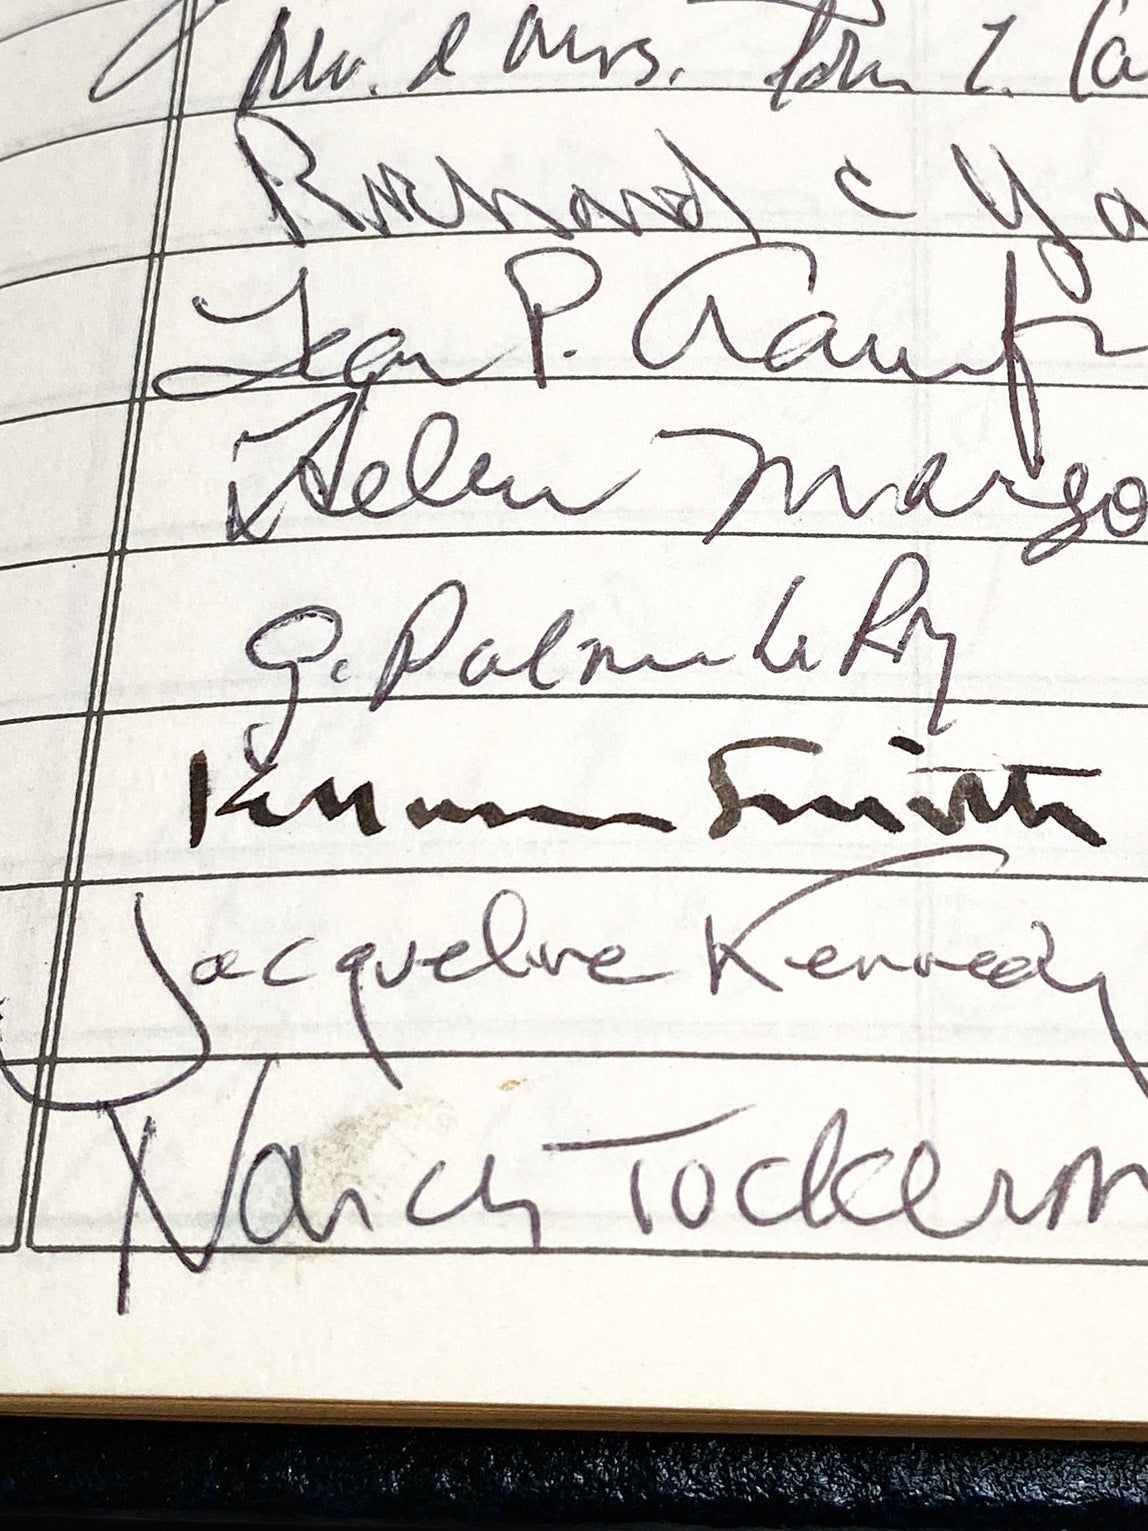 Mr. & Mrs. John L. Ca
Richard C Ya
Jean P. Crawf
Helen Margo
G. Palmer Le Roy
Kellman Smith
Jacqueline Kennedy
Nancy Tuckerm